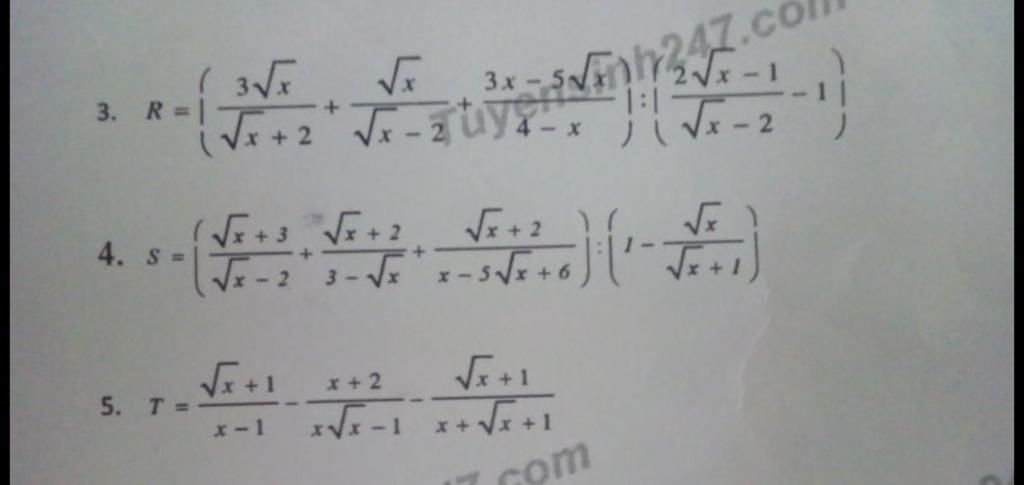 3. R = ( 3√x / (√x + 2) + √x / (√x − 2) + (3x − 5√x) / (4 − x) ) : ( (2√x − 1) / (√x − 2) − 1 )
Tuyensinh247.com
4. S = ( (√x + 3) / (√x − 2) + (√x + 2) / (3 − √x) + (√x + 2) / (x − 5√x + 6) ) : ( 1 − √x / (√x + 1) )
5. T = (√x + 1) / (x − 1) − (x + 2) / (x√x − 1) − (√x + 1) / (x + √x + 1)
7.com